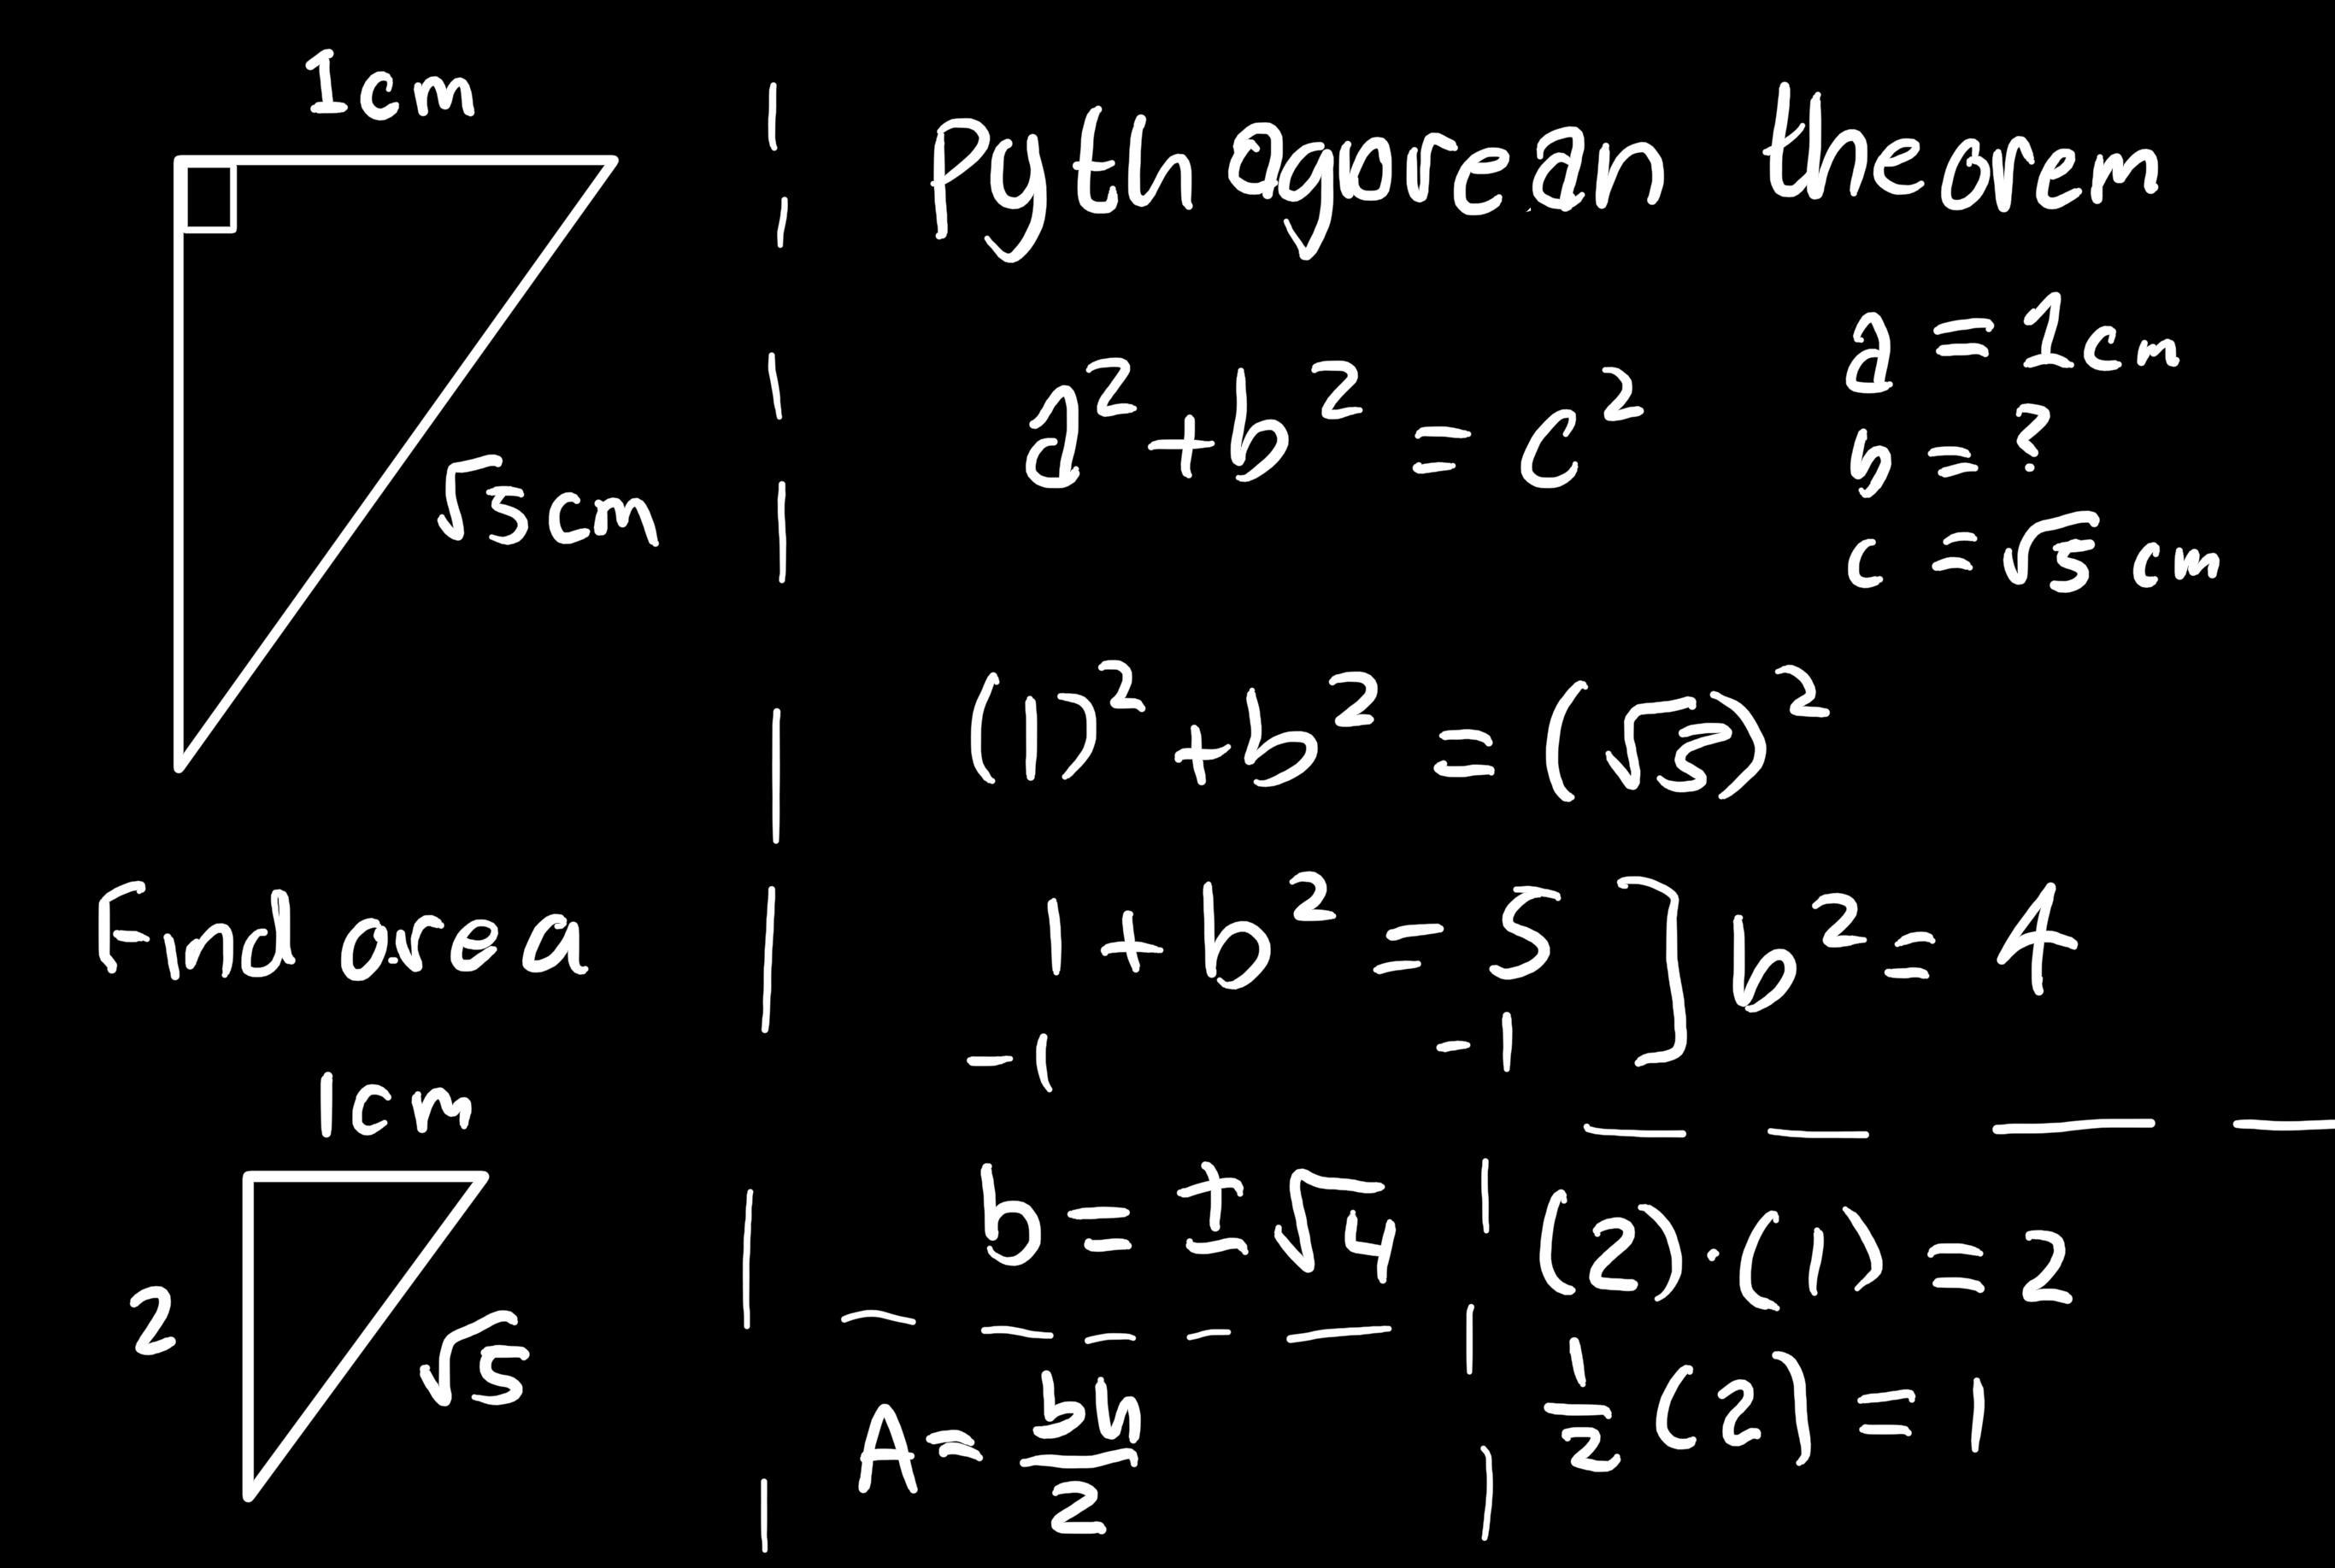 1cm
√5cm
Find area
1cm
2
√5
Pythagorean theorem
a² + b² = c²
a = 1cm
b = ?
c = √5 cm
(1)² + b² = (√5)²
1 + b² = 5 ] b² = 4
-1 -1
b = ±√4
A = bh/2
(2)·(1) = 2
1/2 (2) = 1